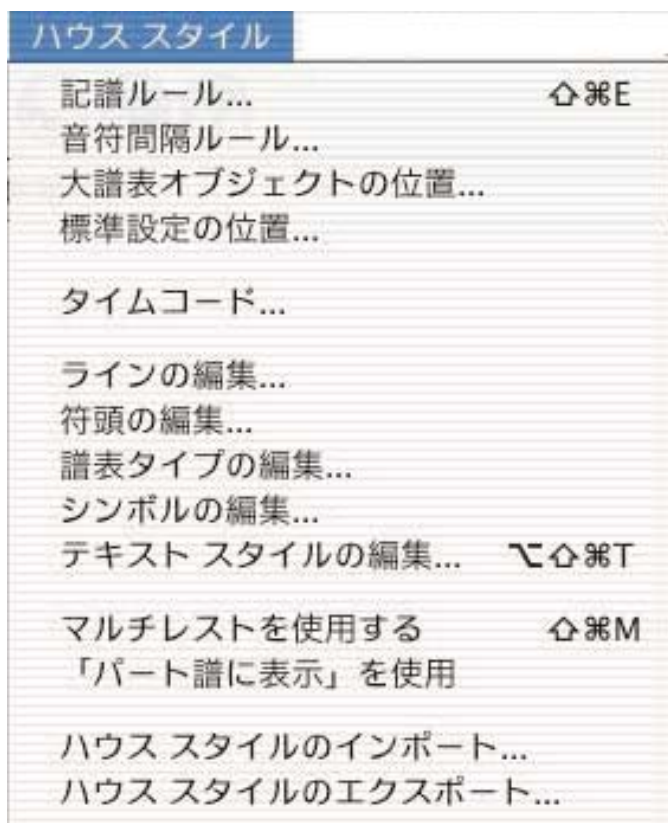 ハウス スタイル
記譜ルール... ⇧⌘E
音符間隔ルール...
大譜表オブジェクトの位置...
標準設定の位置...
タイムコード...
ラインの編集...
符頭の編集...
譜表タイプの編集...
シンボルの編集...
テキスト スタイルの編集... ⌥⇧⌘T
マルチレストを使用する ⇧⌘M
「パート譜に表示」を使用
ハウス スタイルのインポート...
ハウス スタイルのエクスポート...